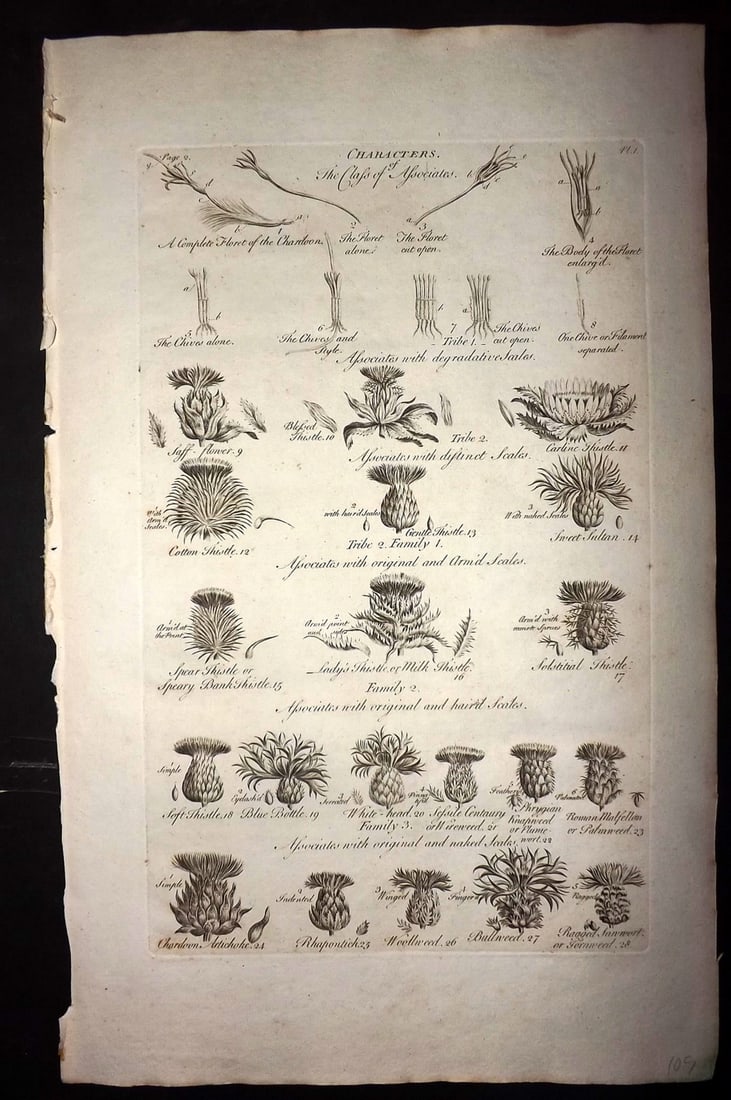 Page 2.
CHARACTERS.
Pl. 1.
of
The Class of Associates.
g
f
e
d
c
b
a
1
A Complete Floret of the Chardoon.
2
The Floret
alone.
3
The Floret
cut open.
a
b
c
d
e
a
a
b
4
The Body of the Floret
enlarg'd.
a
b
5
The Chives alone.
6
The Chives and
Style.
7
Tribe 1.
The Chives
cut open.
a
b
8
One Chive or Filament
separated.
Associates with degradative Scales.
Saff-flower. 9
Blessed
Thistle. 10
Tribe 2.
Carline Thistle. 11
Associates with distinct Scales.
1
With
Arm'd
Scales.
Cotton Thistle. 12
2
with hair'd Scales
Gentle Thistle. 13
3
With naked Scales
Sweet Sultan. 14
Tribe 2. Family 1.
Associates with original and Arm'd Scales.
1
Arm'd at
the Point
Spear Thistle or
Speary Bank Thistle. 15
2
Arm'd point
and sides
Lady's Thistle or Milk Thistle.
16
3
Arm'd with
minute Spines
Solstitial Thistle.
17
Family 2.
Associates with original and hair'd Scales.
1
Simple
Soft Thistle. 18
2
Eyelash'd
Blue Bottle. 19
3
Serrated
White-head. 20
4
Sessile Centaury
or Wireweed. 21
5
Feather'd
Phrygian
Knapweed
or Plume-
wort. 22
6
Palmated
Roman Matfellon
or Palmweed. 23
Family 3.
Associates with original and naked Scales.
1
Simple
Chardoon Artichoke. 24
2
Indented
Rhapontick. 25
3
Winged
Woollweed. 26
4
Finger'd
Bullweed. 27
5
Ragged
Ragged Sawwort
or Fernweed. 28
109